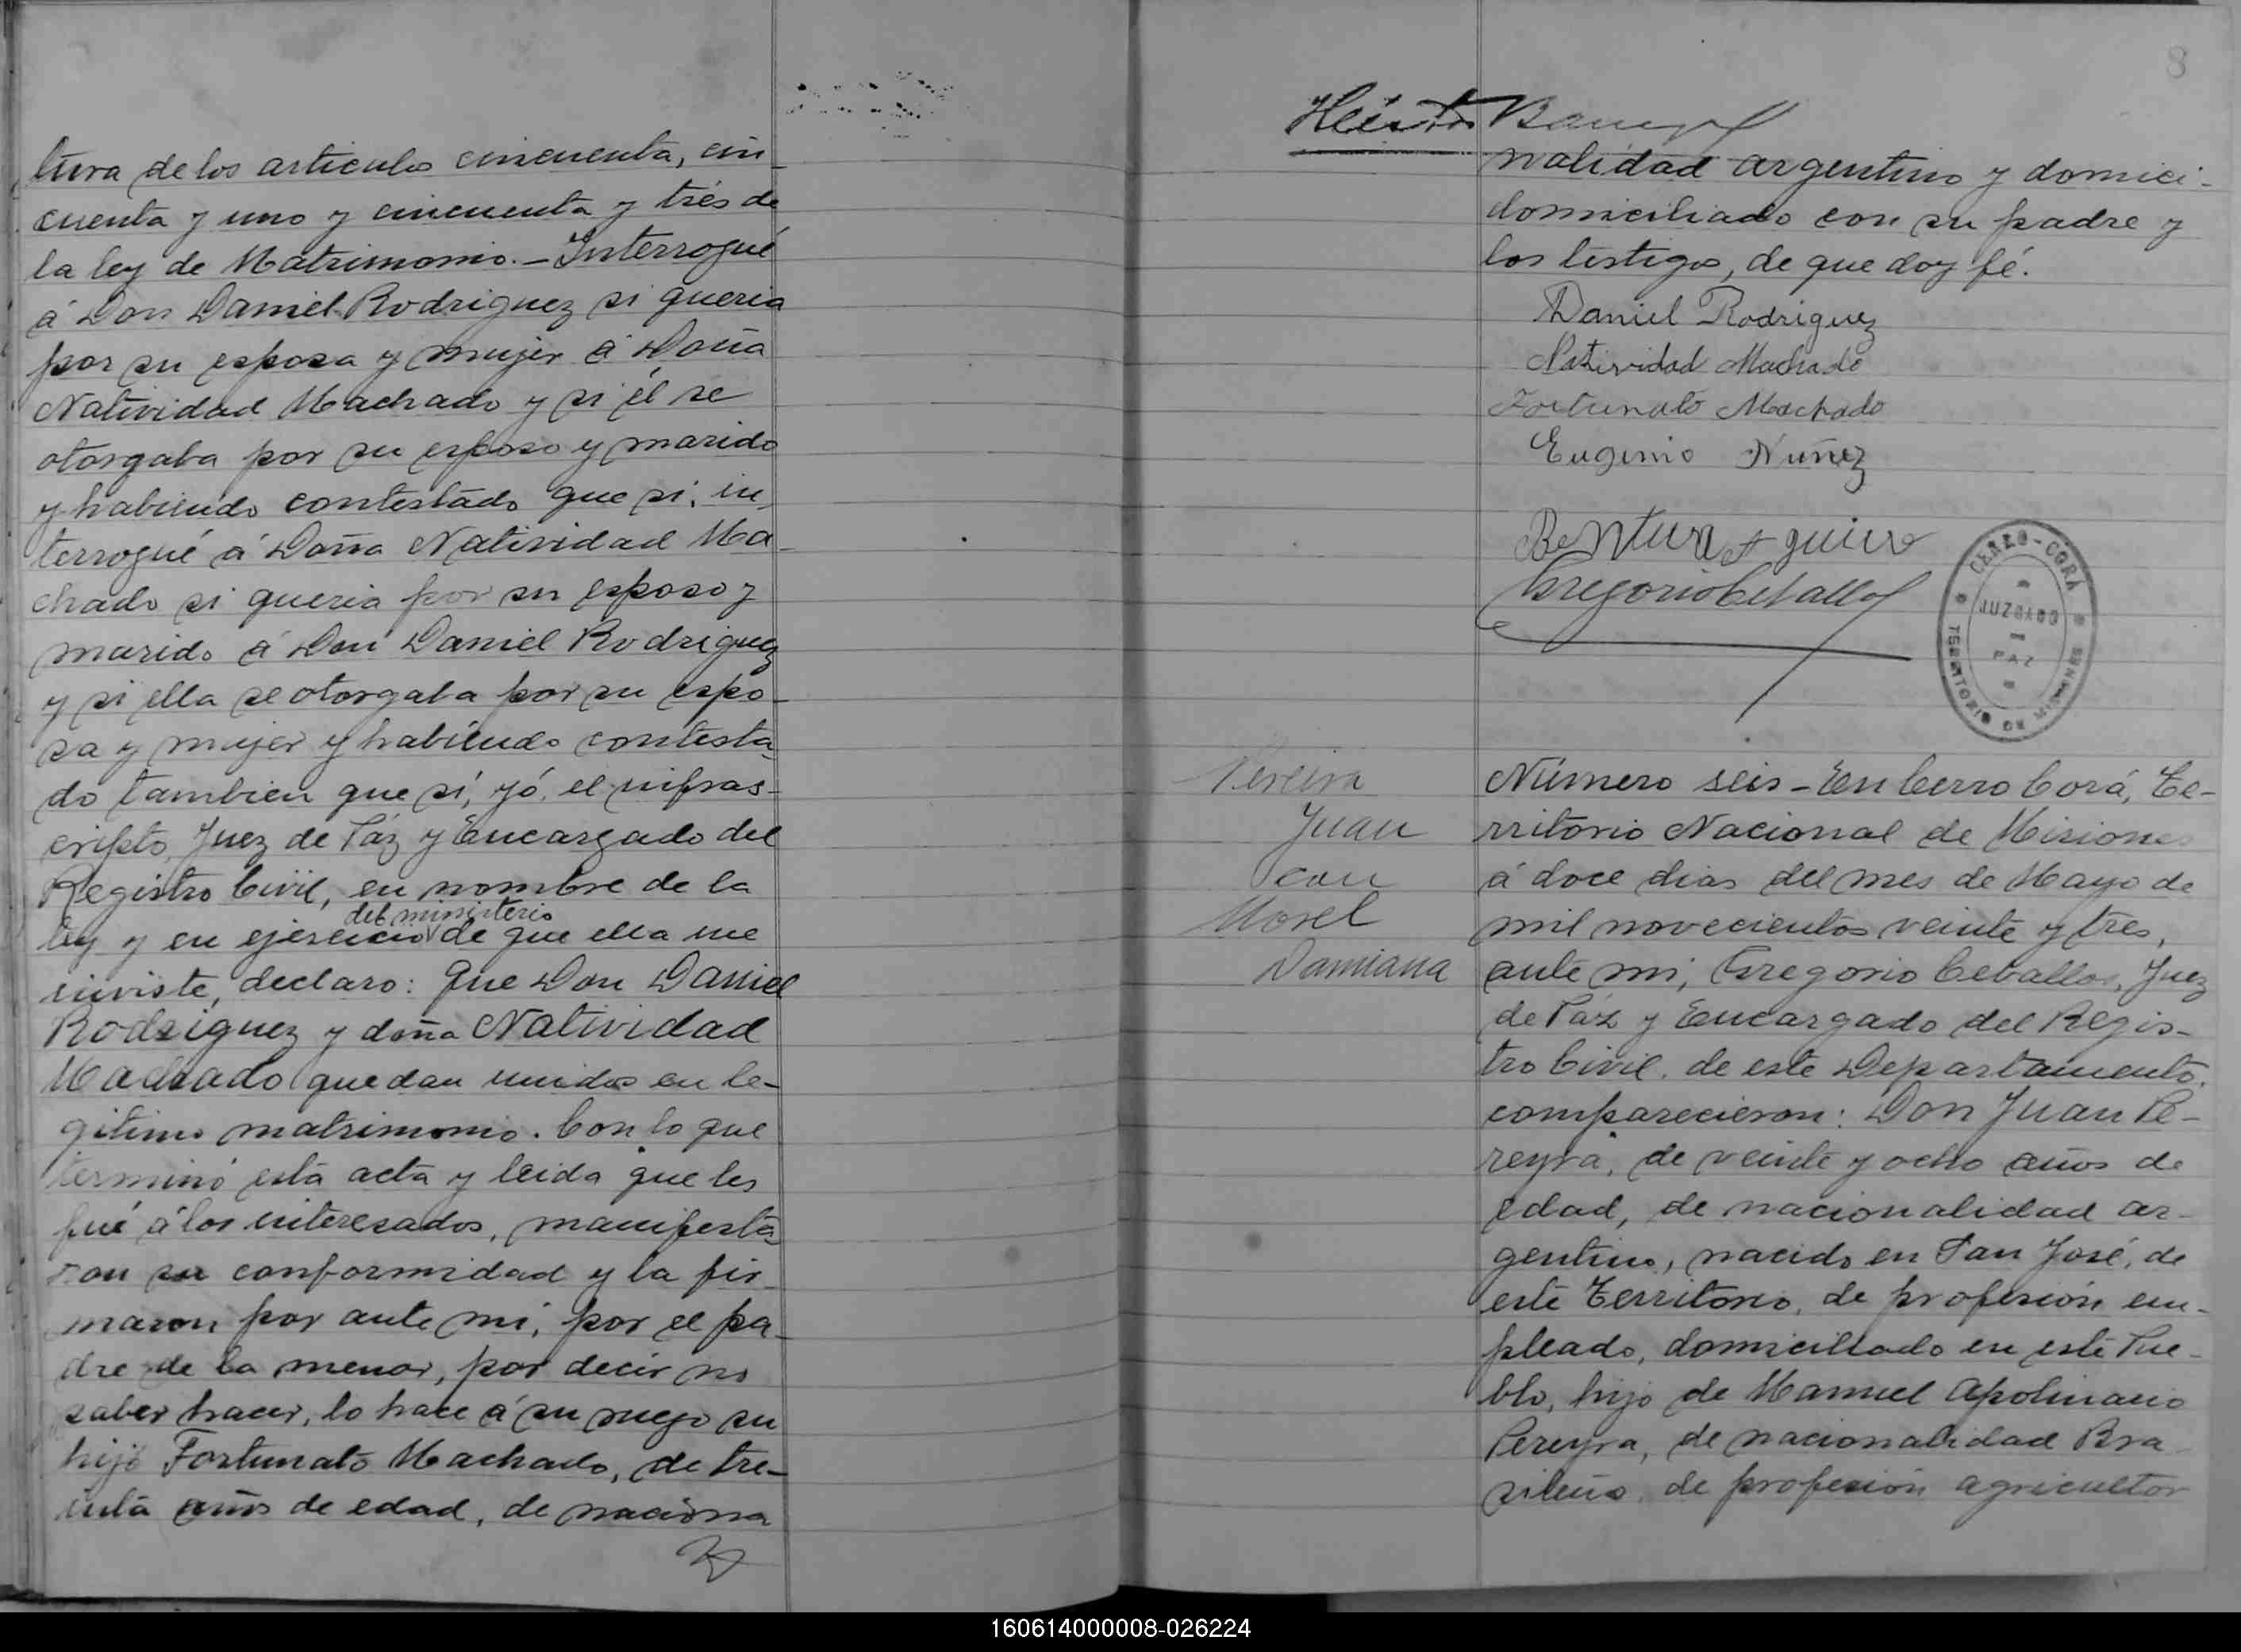 tura de los articulos cincuenta, cin-
cuenta y uno y cincuenta y trés de
la ley de Matrimonio.- Interrogué
á Don Daniel Rodriguez si queria
por su esposa y mujer á Doña
Natividad Machado y si él se
otorgaba por su esposo y marido
y habiendo contestado que sí, in
terrogué á Doña Natividad Ma-
chado si queria por su esposo y
marido á Don Daniel Rodriguez
y si ella se otorgaba por su espo-
sa y mujer y habiendo contesta-
do tambien que sí, yó, el infras-
cripto, Juez de Páz y Encargado del
Registro Civil, en nombre de la
del ministerio
ley y en ejercicio de que ella me
inviste, declaro: Que Don Daniel
Rodriguez y doña Natividad
Machado quedan unidos en le-
gitimo matrimonio. Con lo que
terminó esta acta y leida que les
fué á los interesados, manifesta-
ron su conformidad y la fir-
maron por ante mi, por el pa-
dre de la menor, por decir no
saber hacer, lo hace á su ruego su
hijo Fortunato Machado, de tre-
inta años de edad, de naciona
8
nalidad argentino y domici-
domiciliado con su padre y
los testigos, de que doy fé.
Daniel Rodriguez
Natividad Machado
Fortunato Machado
Eugenio Nuñez
Bentura Aguirre
Gregorio Ceballos
CERRO-CORÁ
JUZGADO
PAZ
TERRITORIO DE MISIONES
Pereira
Juan
con
Morel
Damiana
Número seis - En Cerro Corá, Te-
rritorio Nacional de Misiones
á doce dias del mes de Mayo de
mil novecientos veinte y tres,
ante mi, Gregorio Ceballos, Juez
de Páz y Encargado del Regis-
tro Civil de este Departamento,
comparecieron: Don Juan Pe-
reyra, de veinte y ocho años de
edad, de nacionalidad ar-
gentino, nacido en San José, de
este Territorio, de profesión em-
pleado, domiciliado en este Pue-
blo, hijo de Manuel Apolinario
Pereyra, de nacionalidad Bra-
sileño, de profesión agricultor
160614000008-026224